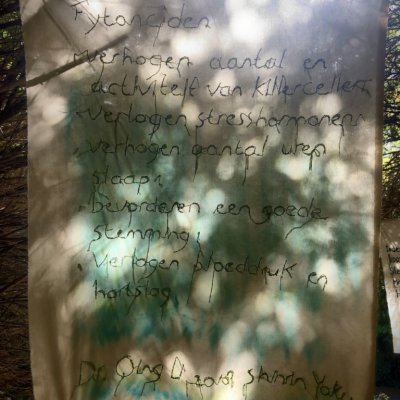 Fytonciden
- verhogen aantal en
activiteit van killercellen,
- Verlagen stresshormonen
- verhogen aantal uren
slaap,
- bevorderen een goede
stemming,
- Verlagen bloeddruk en
hartslag
Dr. Qing Li 2018 Shinrin Yoku